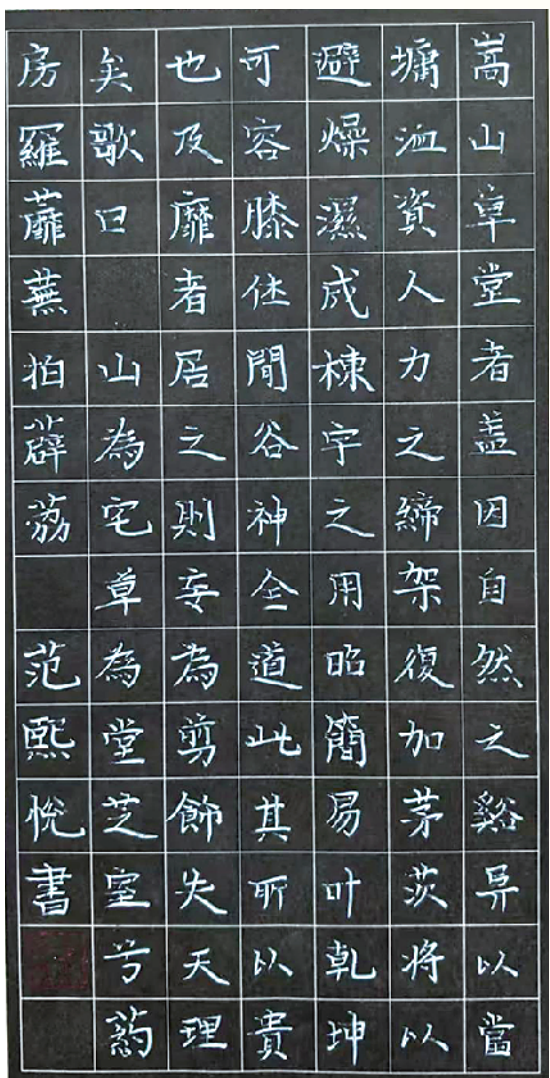 嵩山草堂者盖因自然之谿阜以當
墉洫資人力之締架復加茅茨將以
避燥濕成棟宇之用昭簡易叶乾坤
可容膝休閒谷神全道此其所以貴
也及靡者居之則妄為剪飾失天理
矣歌曰 山為宅草為堂芝室兮药
房羅蘼蕪拍薜荔 范熙悅書